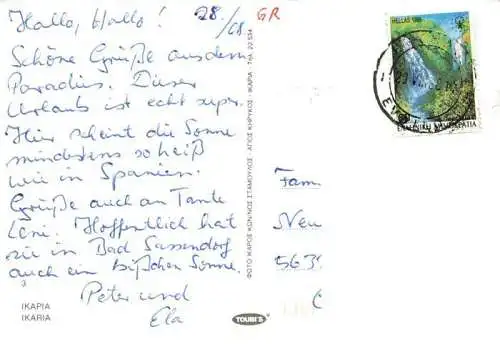 Hallo, Hallo! 28./08. GR
Schöne Grüße aus dem
Paradies. Dieser
Urlaub ist echt super.
Hier scheint die Sonne
mindestens so heiß
wie in Spanien.
Grüße auch an Tante
Leni. Hoffentlich hat
sie in Bad Sassendorf
auch ein bißchen Sonne.
Peter und
Ela
3
ΙΚΑΡΙΑ
IKARIA
ΦΩΤΟ ΙΚΑΡΟΣ ΚΩΝ/ΝΟΣ ΣΤΑΜΟΥΛΟΣ · ΑΓΙΟΣ ΚΗΡΥΚΟΣ · ΙΚΑΡΙΑ · ΤΗΛ. 22.534
TOUBI'S
HELLAS
ΕΛΛΗΝΙΚΗ ΔΗΜΟΚΡΑΤΙΑ
Fam
Neu
563